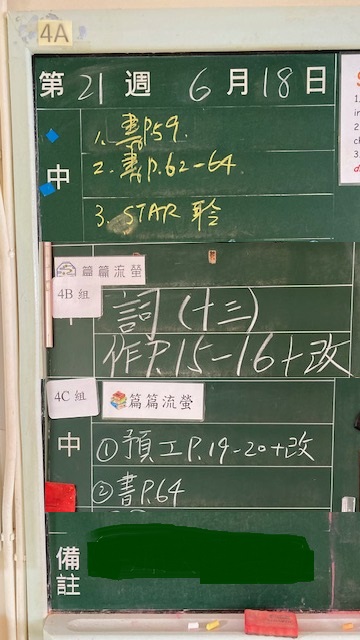 4A
第 21 週 6 月 18 日
中
1. 書P.59.
2. 書P.62-64.
3. STAR 聆
篇篇流螢
4B 組
詞(十三)
作P.15-16+改
4C 組
篇篇流螢
中
①預工P.19-20+改
②書P.64
備註